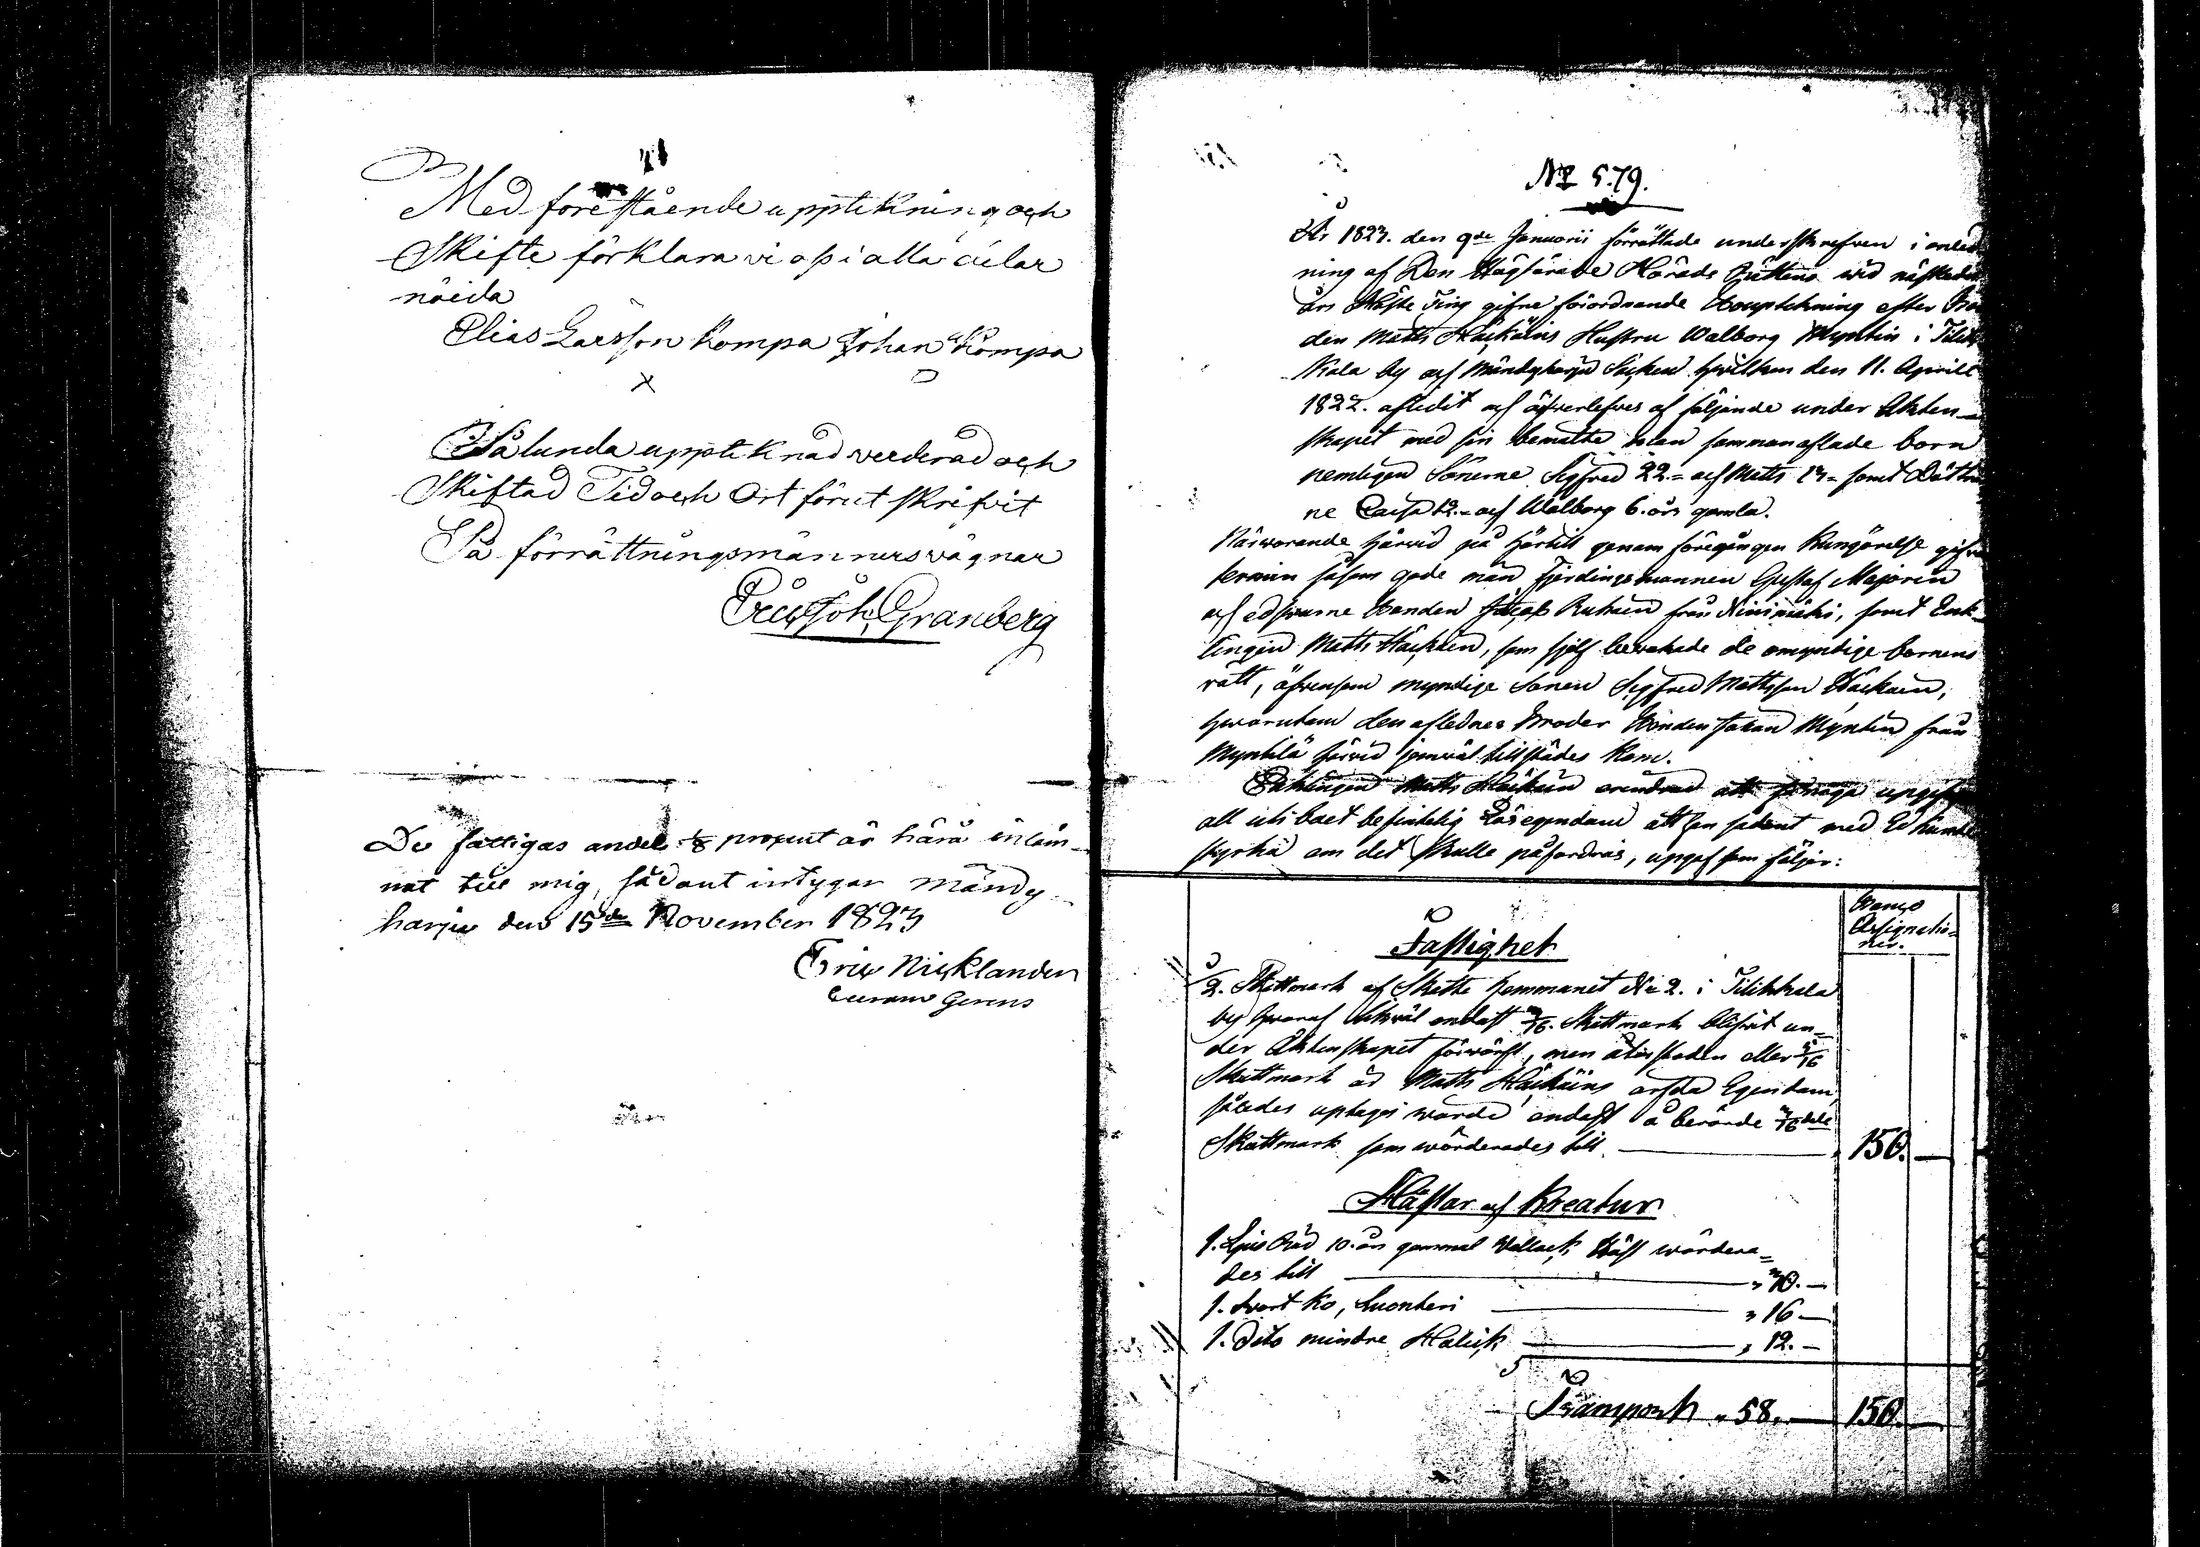 Med förestående upptekning och
Skifte förklara vi oss i alla delar
nöida
Elias Larsson Kompa Johan Kompa
X
Sålunda upptiknad verderad och
Skiftad Tid och Ort förut skrifvit
På förrättningsmänners vägnar
Joh. Granberg
De fattigas andel 1/8 procent är härå inläm-
nat till mig, sådant intygar Mändy-
harju den 15de November 1823
Eric Nicklander
Curam Gerens
No 579.
År 1823. den 9de Januarii förrättade underskrefven i anled
ning af Den Härads Rättens vid
års Höste Ting gifne förordnande Bouptekning efter Bon
den Matts Häckäins Hustru Walborg Myntin i Tilik
kala by och Mändyharju Sochn hvilken den 11. Aprill
1822. afledit och öfverlefves af följande under Äkten-
skapet med sin bemälte man sammanaflade barn
nemligen Sönerne Sigfred 22.- och Matts 13- samt Döttra
ne Caisa 12.- och Walborg 6. års gamla.
Närvarande härvid på härtill genom föregången Kungörelse gifven
termin såsom gode män Fjerdingsmannen Gustaf Majorin
och edsvurne Bonden Ruhain från Niinimäki, samt Enk-
lingen Matts Häckäin, som sjelf bevakade de omyndige barnens
rätt, äfvensom myndige Sonen Sigfred Mattsson Häckäin,
hvarutom den aflednes Broder Bonden Johan Myntin från
Myntilä härvid jemväl tillstädes kom.
Enklingen Matts Häckäin att upgifva
all uti boet befintelig Lösegendom att han sådant med Ed
styrka om det skulle påfordras, upgaf som följer:
Banco
Assignatio-
ner.
Fastighet
2. Skattmark af Skatte hemmanet No 2. i Tilikkala
by hvaraf likväl endast Skattmark blifvit un-
der Äktenskapet förvärft, men återstoden eller
Skattmark är Matts Häckäins ärfda Egendom,
således uptages värde endast å berörde
Skattmark som värderades till 150. —
Hästar och Kreatur
1. Ljus Röd 10. års gammal Vallack Häst värdera-
des till " 30. —
1. Svart Ko, Suonteri " 16 —
1. Dito mindre Halick " 12. —
Transport " 58. — 150. —